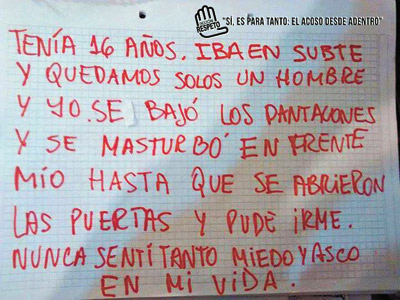 RESPETO
"SÍ, ES PARA TANTO: EL ACOSO DESDE ADENTRO"
TENÍA 16 AÑOS. IBA EN SUBTE
Y QUEDAMOS SOLOS UN HOMBRE
Y YO. SE BAJÓ LOS PANTALONES
Y SE MASTURBÓ EN FRENTE
MÍO HASTA QUE SE ABRIERON
LAS PUERTAS Y PUDE IRME.
NUNCA SENTÍ TANTO MIEDO Y ASCO
EN MI VIDA.